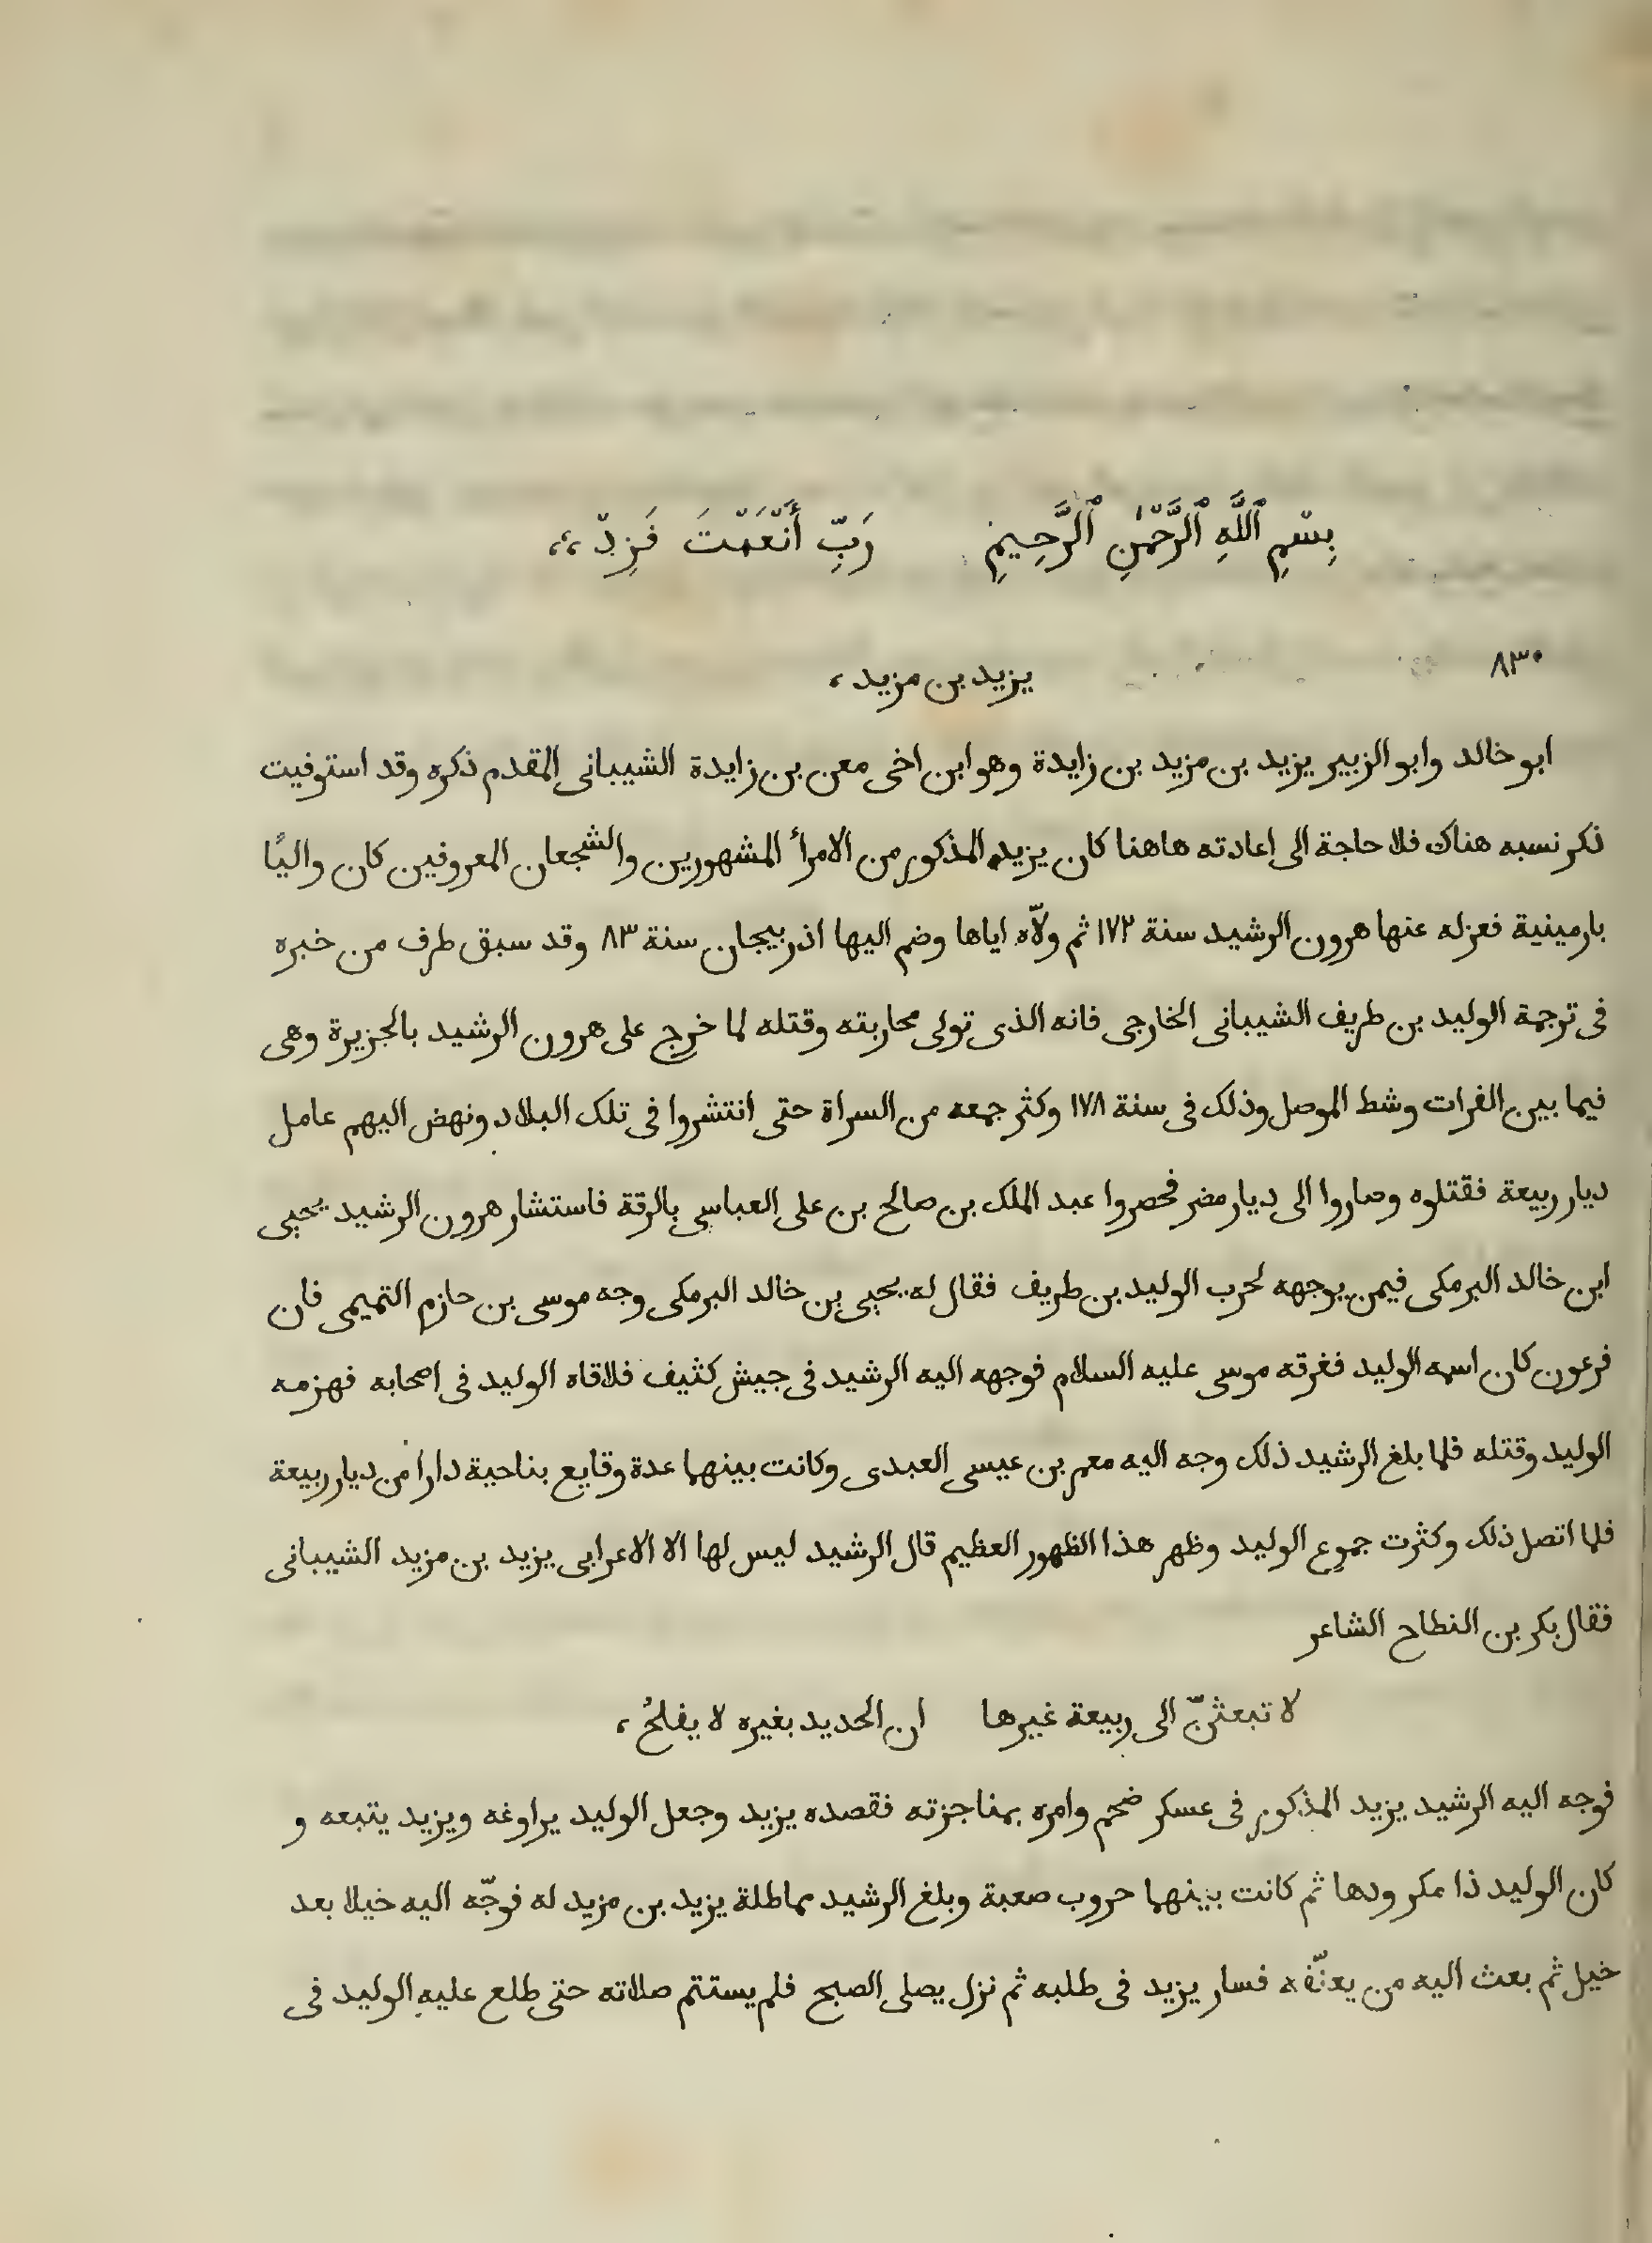 بِسْمِ ٱللَّهِ ٱلرَّحْمٰنِ ٱلرَّحِيمِ رَبِّ أَنْعَمْتَ فَزِدْ ،،
٨٣٠
يزيد بن مزيد ،
ابو خالد وابو الزبير يزيد بن مزيد بن زايدة وهو ابن اخى معن بن زايدة الشيبانى المقدم ذكره وقد استوفيت
ذكر نسبه هناك فلا حاجة الى اعادته هاهنا كان يزيد المذكور من الامرأ المشهورين والشجعان المعروفين كان واليًا
بارمينية فعزله عنها هرون الرشيد سنة ١٧٢ ثم ولّاه اياها وضم اليها اذربيجان سنة ٨٣ وقد سبق طرف من خبره
فى ترجمة الوليد بن طريف الشيبانى الخارجى فانه الذى تولى محاربته وقتله لما خرج على هرون الرشيد بالجزيرة وهى
فيما بين الفرات وشط الموصل وذلك فى سنة ١٧٨ وكثر جمعه من السراة حتى انتشروا فى تلك البلاد ونهض اليهم عامل
ديار ربيعة فقتلوه وصاروا الى ديار مضر فحصروا عبد الملك بن صالح بن على العباسى بالرقة فاستشار هرون الرشيد يحيى
ابن خالد البرمكى فيمن يوجهه لحرب الوليد بن طريف فقال له يحيى بن خالد البرمكى وجه موسى بن حازم التميمى فان
فرعون كان اسمه الوليد فغرقه موسى عليه السلام فوجهه اليه الرشيد فى جيش كثيف فلاقاه الوليد فى اصحابه فهزمه
الوليد وقتله فلما بلغ الرشيد ذلك وجه اليه معمر بن عيسى العبدى وكانت بينهما عدة وقايع بناحية دارا من ديار ربيعة
فلما اتصل ذلك وكثرت جموع الوليد وظهر هذا الظهور العظيم قال الرشيد ليس لها الا الاعرابى يزيد بن مزيد الشيبانى
فقال بكر بن النطاح الشاعر
لا تبعثنّ الى ربيعة غيرها ان الحديد بغيره لا يفلحُ ،
فوجه اليه الرشيد يزيد المذكور فى عسكر ضخم وامره بمناجزته فقصده يزيد وجعل الوليد يراوغه ويزيد يتبعه و
كان الوليد ذا مكر ودها ثم كانت بينهما حروب صعبة وبلغ الرشيد مماطلة يزيد بن مزيد له فوجّه اليه خيلا بعد
خيل ثم بعث اليه من يعنّفه فسار يزيد فى طلبه ثم نزل يصلى الصبح فلم يستتم صلاته حتى طلع عليه الوليد فى